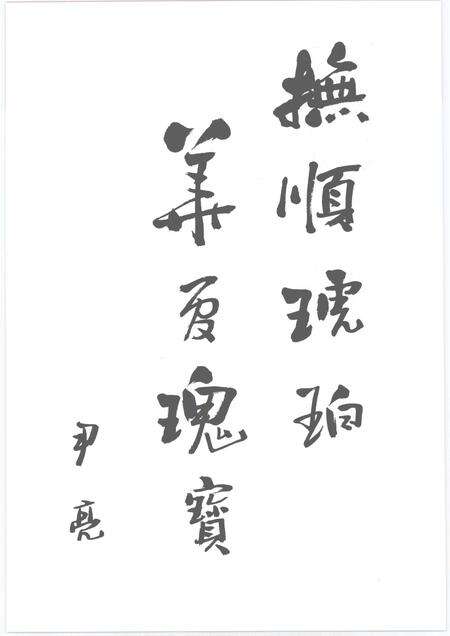 撫順琥珀
華夏瑰寶
尹亮